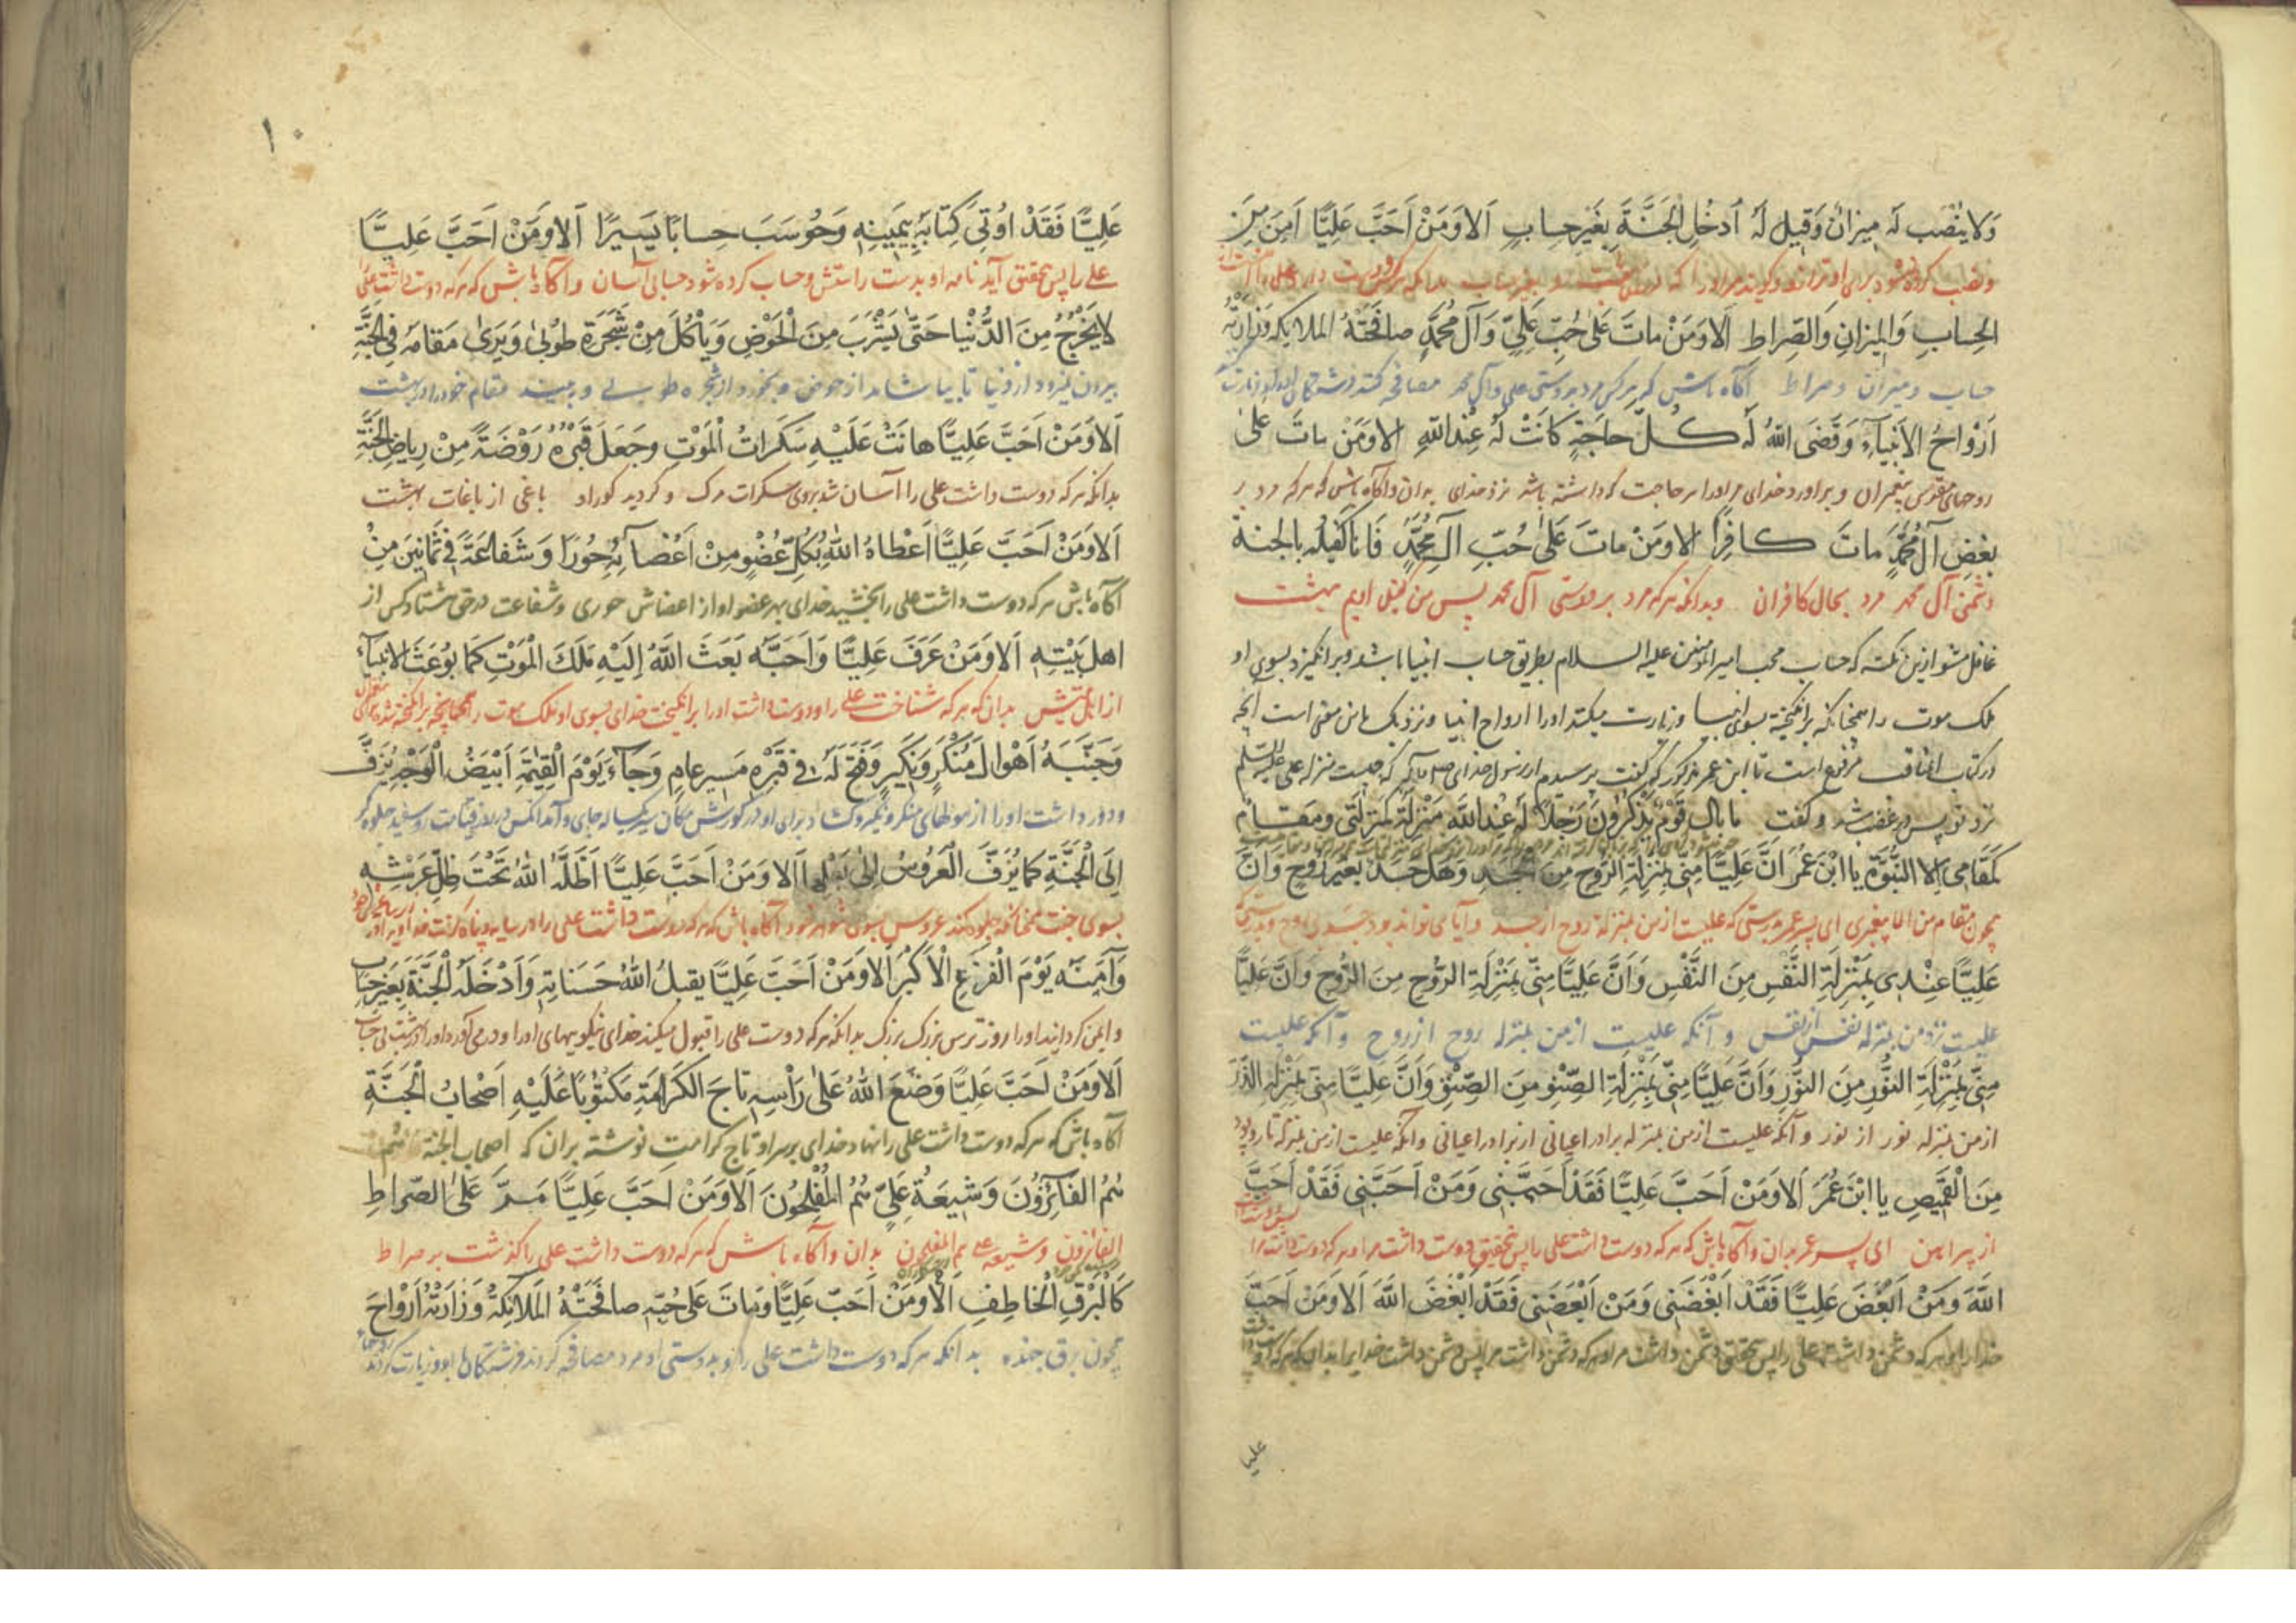 وَلا ينُصَب لَه ميزانٌ وَقيلَ لَهُ اَدخُلِ الجَنَّةَ بِغَيرِ حِسابٍ اَلاوَمَنْ اَحَبَّ عَلِيًّا اَمِنَ مِنَ
الحِسابِ وَالميزانِ وَالصِّراطِ اَلاوَمَنْ ماتَ عَلىٰ حُبِّ عَلِيٍّ وَآلِ مُحَمَّدٍ صافَحَتْهُ الملايكه وَزارَتْهُ
حساب و ميزان و صراط آكاه باش كه هر كس مرد بدوستى على وآل محمد مصافحه كنند فرشتكان
اَرْواحُ الاَنبِيآءِ وَقَضَى اللهُ لَهُ كُلَّ حاجَةٍ كانَتْ لَهُ عِنْدَاللهِ الاوَمَن ماتَ عَلىٰ
روحهاى مقدس پيغمبران و براورد خداى مر اورا هر حاجت كه داشته باشد نزد خداى بدان و آكاه باش كه هر كه مرد بر
بغضِ آلِ مُحَمَّدٍ ماتَ كافِرًا الاومَنْ ماتَ عَلىٰ حُبِّ آلِ مُحَمَّدٍ فَاَنَا كَفيلُه بالجنة
دشمنى آل محمد مرد بحال كافران وبدانكه هر كه مرد بر دوستى آل محمد پس من كفيل اويم بهشت
غافل مشو ازين نكته كه حساب محب اميرالمؤمنين عليه السلام بطريق حساب انبيا باشد و برانكيزد بسوى او
ملك موت را همچنانكه برانكيخته بسوى انبيا و زيارت ميكند اورا ارواح انبيا و نزديك باين معنى است آنچه
در كتاب مناقب مرفوع است تا ابن عمر مذكور كه كفت پرسيدم از رسول خداى كه چيست منزله على عليه السلم
نزد تو پس در غضب شد و كفت ما بالُ قَوْمٍ يَذْكُرُونَ رَجُلاً لَهُ عِنْدَاللهِ مَنْزِلَةٌ كَمَنْزِلَتى ومَقام
كَمَقامى اِلا النُّبُوَّةَ يا ابْنَ عُمَرَ اَنَّ عَلِيًّا مِنّى بِمَنْزِلَةِ الرّوحِ مِنَ الْجَسَدِ وَهَلْ جَسَدٌ بِغَيْرِ رُوحٍ وَاَنَّ
همچون مقام من الا پيغمبرى اى پسر عمر بدرستى كه عليست از من بمنزله روح از جسد و آيا مى تواند بود جسد بى روح
عَلِيًّا عِنْدى بِمَنْزِلَةِ النَّفْسِ مِنَ النَّفْسِ وَاَنَّ عَلِيًّا مِنّى بِمَنْزِلَةِ الرُّوحِ مِنَ الرُّوحِ وَاَنَّ عَلِيًّا
عليست نزد من بمنزله نفس از نفس و آنكه عليست از من بمنزله روح از روح و آنكه عليست
مِنّى بِمَنْزِلَةِ النُّورِ مِنَ النُّورِ وَاَنَّ عَلِيًّا مِنّى بِمَنْزِلَةِ الصِّنْوِ مِنَ الصِّنْوِ وَاَنَّ عَلِيًّا مِنّى بِمَنْزِلَةِ الذرّ
از من بمنزله نور از نور و آنكه عليست از من بمنزله برادر اعيانى از برادر اعيانى و آنكه عليست از من بمنزله تار و پود
مِنَ الْقَميصِ يا ابْنَ عُمَرَ اَلاوَمَنْ اَحَبَّ عَلِيًّا فَقَدْ اَحَبَّنى وَمَنْ اَحَبَّنى فَقَدْ اَحَبَّ
از پيراهن اى پسر عمر بدان و آكاه باش كه هر كه دوست داشت على را پس بتحقيق دوست داشت مرا و هر كه دوست داشت مرا
اللهَ وَمَنْ اَبْغَضَ عَلِيًّا فَقَدْ اَبْغَضَنى وَمَنْ اَبْغَضَنى فَقَدْ اَبْغَضَ اللهَ اَلاوَمَن اَحَبَّ
عليا
١٠
عَلِيًّا فَقَدْ اُوتِىَ كِتابَهُ بِيَمينِهِ وَحُوسَبَ حِسابًا يَسيرًا اَلاوَمَنْ اَحَبَّ عَلِيًّا
على را پس بتحقيق آيد نامه او بدست راستش و حساب كرده شود حسابى آسان و آكاه باش كه هر كه دوست داشت على را
لايَخْرُجُ مِنَ الدُّنْيا حَتّىٰ يَشْرَبَ مِنَ الْحَوْضِ وَيَأكُلَ مِنْ شَجَرَةِ طُوبىٰ وَيَرىٰ مَقامَهُ فِى الجَنَّةِ
بيرون نيرود از دنيا تا بياشامد از حوض و بخورد از شجره طوبى و ببيند مقام خود را در بهشت
اَلاوَمَنْ اَحَبَّ عَلِيًّا هانَتْ عَلَيْهِ سَكَراتُ الْمَوْتِ وجَعَلَ قَبْرَهُ رَوْضَةً مِنْ رِياضِ الجَنَّةِ
بدانكه هر كه دوست داشت على را آسان شد بروى سكرات مرك و كرديد كور او باغى از باغات بهشت
اَلاوَمَنْ اَحَبَّ عَلِيًّا اَعْطاهُ اللهُ بِكُلِّ عُضْوٍ مِنْ اَعْضآئِهِ حُورًا وَشَفاعَةً فى ثَمانينَ مِنْ
آكاه باش هر كه دوست داشت على را بخشيد خداى بهر عضو او از اعضاش حورى و شفاعت در حق هشتاد كس از
اهلِ بَيْتِهِ اَلاوَمَنْ عَرَفَ عَلِيًّا وَاَحَبَّه بَعَثَ اللهُ إِلَيْهِ مَلَكَ الْمَوْتِ كَمَا بُوعَثَ الانبيآء
از اهل بيتش بدان كه هر كه شناخت على را و دوست داشت اورا برانكيخت خداى بسوى او ملك موت را همچنانچه برانكيخته شد
وَجَنَّبَهُ اَهْوالَ مُنْكَرٍ وَنَكيرٍ وَفَتَحَ لَهُ فى قَبْرِهِ مَسيرَ عامٍ وَجآءَ يَوْمَ الْقِيٰمَةِ اَبْيَضُ الْوَجْهِ يُزَفُّ
اِلَى الْجَنَّةِ كَمَا يُزَفُّ الْعَرُوسُ اِلىٰ بَعْلِها اَلاوَمَنْ اَحَبَّ عَلِيًّا اَظَلَّهُ اللهُ تَحْتَ ظِلِّ عَرْشِهِ
بسوى جنت همچنانكه جلوه كند عروس بسوى شوهر خود آكاه باش كه هر كه دوست داشت على را در سايه و پناه كرفت خدا
وَآمَنَه يَوْمَ الْفَزَعِ الْاَكْبَرِ اَلاوَمَنْ اَحَبَّ عَلِيًّا يقبلُ اللهُ حَسَناتِهِ وَاَدْخَلَهُ الْجَنَّةَ بِغَيْرِ حِسابٍ
و ايمن كرداند اورا روز ترس بزرك بزرك بدانكه هر كه دوست على را قبول ميكند خداى نيكوييهاى اورا و در مى آورد اورا در بهشت بى حساب
اَلاوَمَنْ اَحَبَّ عَلِيًّا وَضَعَ اللهُ عَلىٰ رَأْسِهِ تاجَ الكَرامَةِ مَكتُوبًا عَلَيْهِ اَصْحابُ الْجَنَّةِ
آكاه باش كه هر كه دوست داشت على را نهاد خداى بر سر او تاج كرامت نوشته بران كه اصحاب الجنة هم
هُمُ الفآئِزُونَ وَشيعَةُ عَلِيٍّ هُمُ المُفْلِحُونَ اَلاوَمَنْ اَحَبَّ عَلِيًّا مَرَّ عَلىَ الصّراطِ
الفائزون و شيعه على هم المفلحون بدان و آكاه باش كه هر كه دوست داشت على را كذشت بر صراط
كَالْبَرْقِ الْخاطِفِ اَلاوَمَنْ اَحَبَّ عَلِيًّا وَماتَ عَلىٰ حُبِّهِ صافَحَتْهُ المَلائِكَةُ وَزارَتْهُ اَرْواحَ
همچون برق جهنده بدانكه هر كه دوست داشت على را و بدوستى او مرد مصافحه كردند فرشتكان با او و زيارت كردند